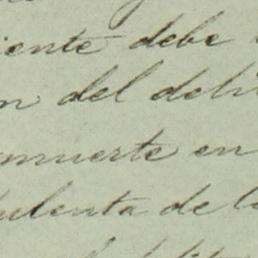 iente debe
n del deli
muerte en
ulenta de l